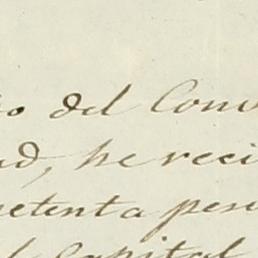 o del Conv
ad, he reci
petenta pesu
l capital